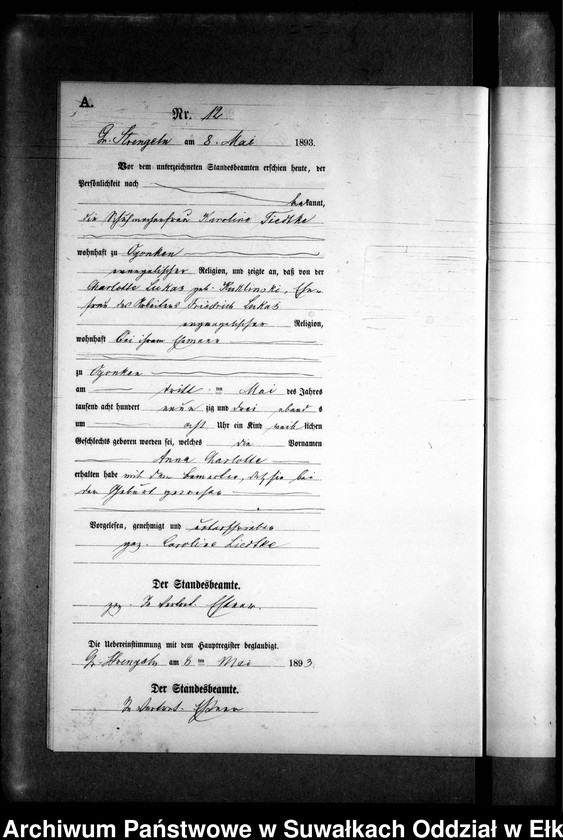 A.
Nr. 12
Gr. Strengeln am 8. Mai 1893.
Vor dem unterzeichneten Standesbeamten erschien heute, der
Persönlichkeit nach
bekannt,
die Schuhmacherfrau Karoline Liedtke
wohnhaft zu Ogonken
evangelischer Religion, und zeigte an, daß von der
Charlotte Lukas geb. Kuklinski, Ehe-
frau des Arbeiters Friedrich Lukas
evangelischer Religion,
wohnhaft bei ihrem Ehemann
zu Ogonken
am dritten Mai des Jahres
tausend acht hundert neun zig und drei abends
um acht Uhr ein Kind weiblichen
Geschlechts geboren worden sei, welches die Vornamen
Anna Charlotte
erhalten habe mit dem Bemerken, daß sie bei
der Geburt gewesen
Vorgelesen, genehmigt und unterschrieben
gez. Caroline Liedtke
Der Standesbeamte.
gez. In Vertret.
Die Uebereinstimmung mit dem Hauptregister beglaubigt.
Gr. Strengeln am 8 ten Mai 1893
Der Standesbeamte.
In Vertret.
Archiwum Państwowe w Suwałkach Oddział w Ełk